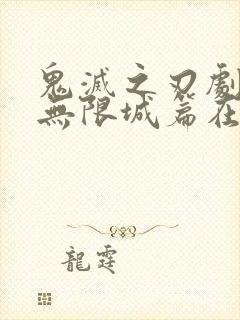 鬼滅之刃劇
無限城篇在
龍霆